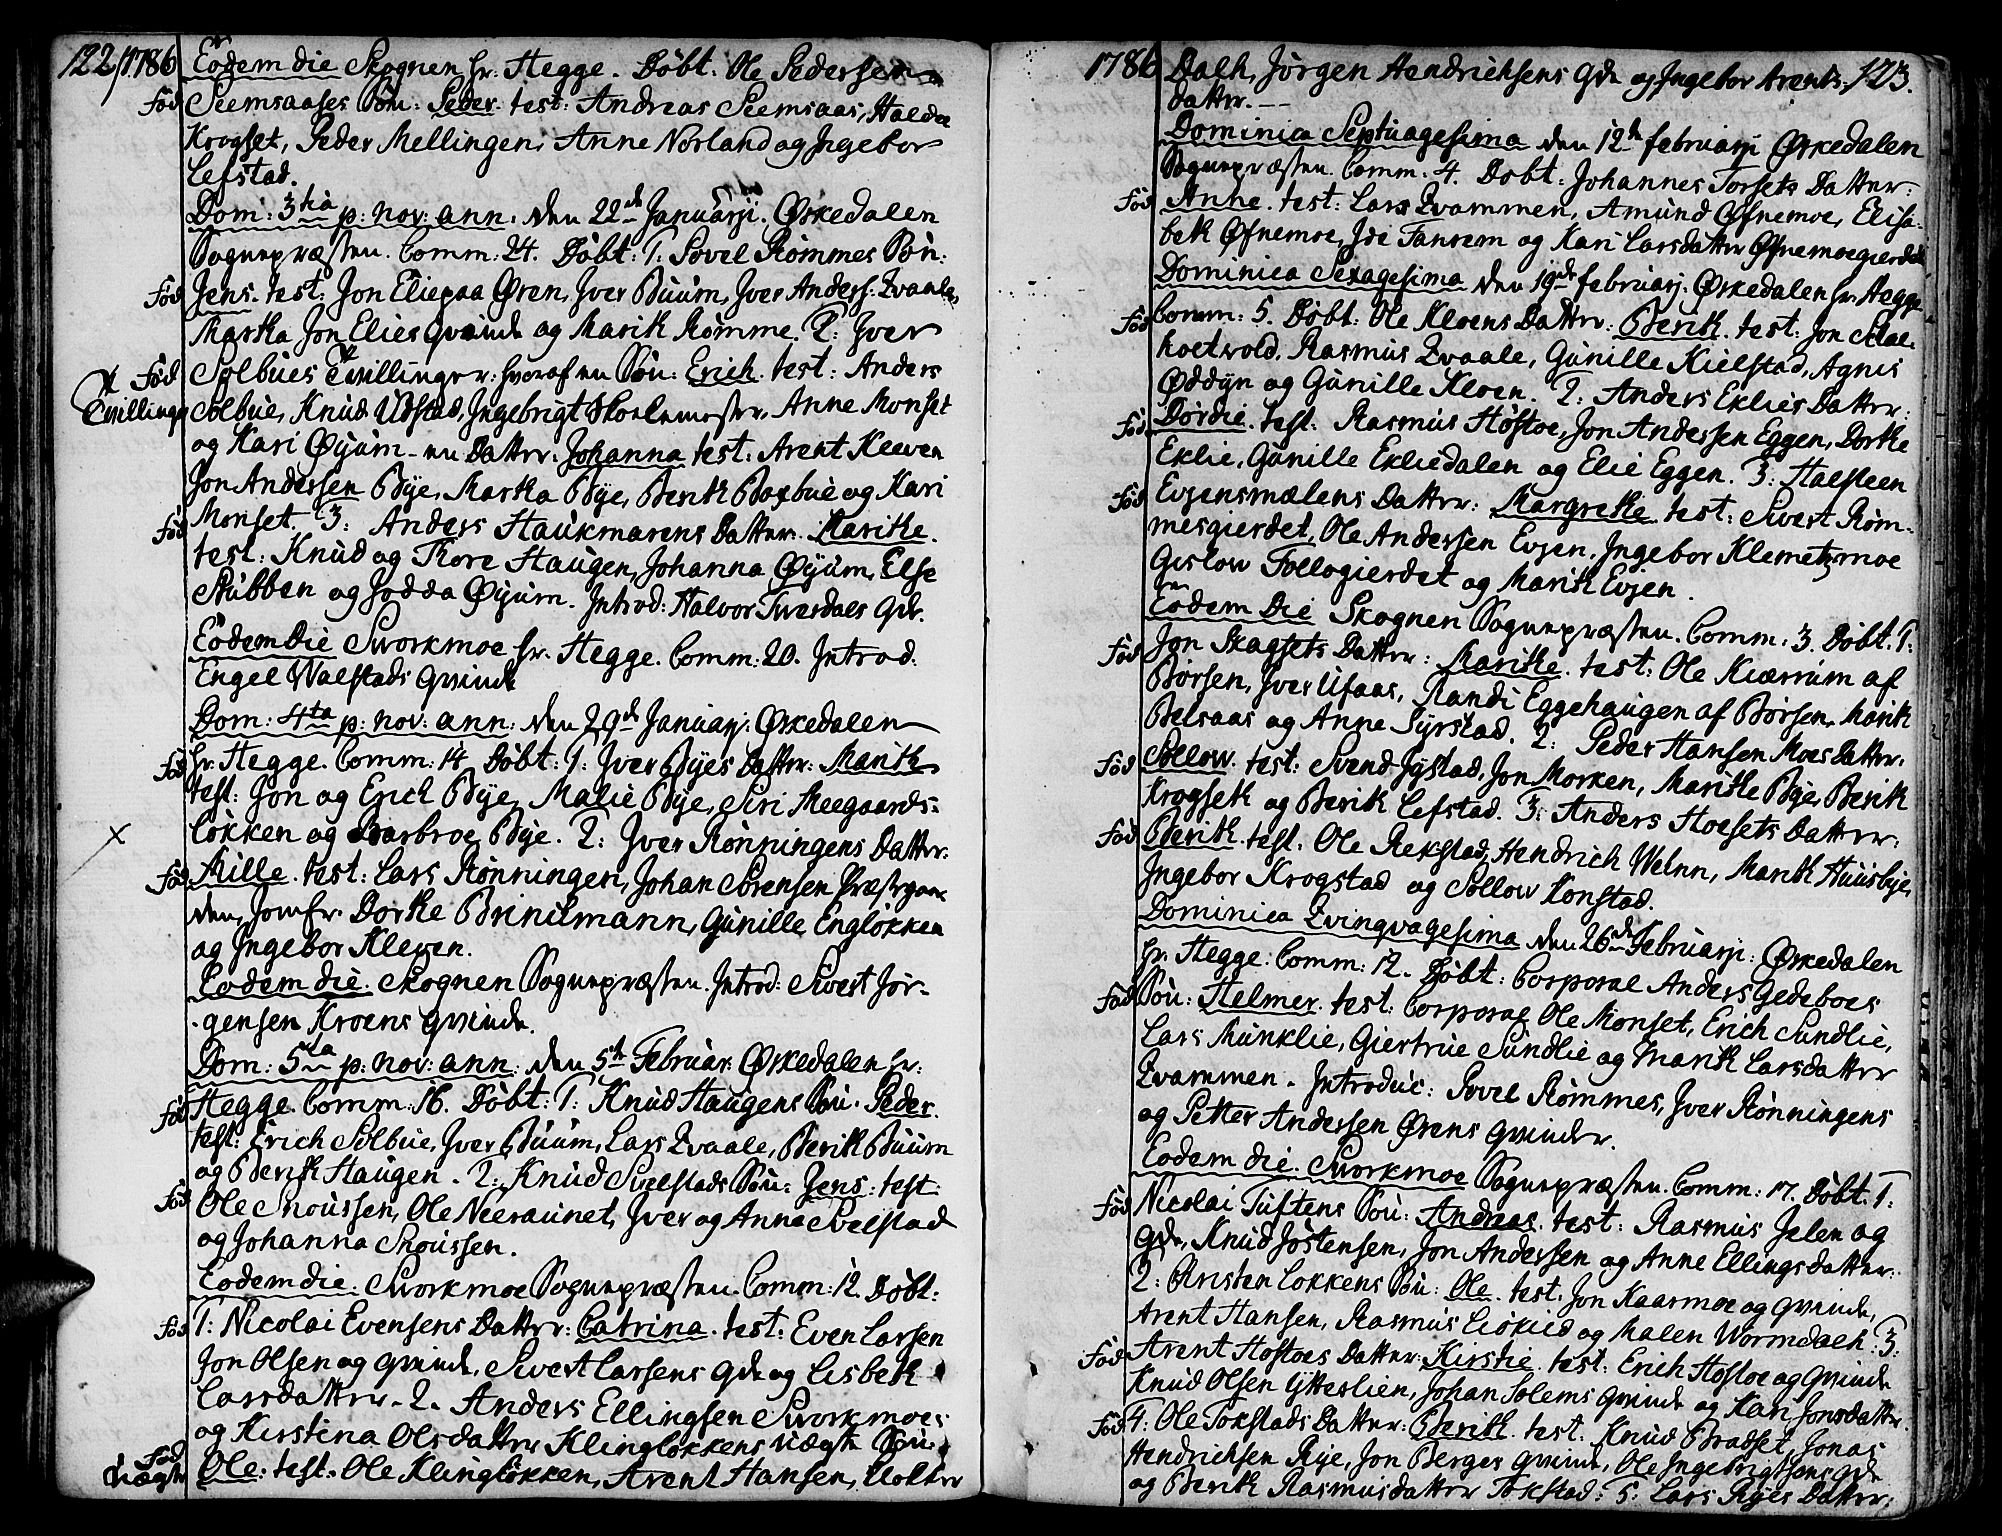 122/1786 Eodem die Skognen hr. Hegge. Døbt. Ole Pedersen
Fød Seemsaases Søn: Peder. test: Andreas Seemsaas, Haldor
Krogset, Peder Mellingen, Anne Norland og Ingebor
Lefstad.
Dom: 3tia p: nov: ann. den 22de Januarji. Ørkedalen
Sognepræsten. Comm: 24. Døbt: 1. Povel Rømmes Søn:
Fød Jens. test: Jon Elie paa Øren, Jver Buum, Jver Anders. Qvaale,
Martha Jon Elies Qvinde og Marith Rømme. 2: Jver
Fød Solbues Tvillinger: hvoraf en Søn: Erich. test: Anders
Tvillinger Solbue, Knud Udstad, Ingebrigt Skolemester, Anne Monset
og Kari Øyum - en Datter. Johanna test: Arent Kleven
Jon Andersen Bye, Martha Bye, Berith Boxbue og Kari
Fød Monset. 3: Anders Haukmarens Datter. Marithe.
test: Knud og Thore Haugen, Johanna Øyum, Else
Stubben og Jodda Øyum. Introd: Halvor Tverdals Qde.
Eodem Die Svorkmoe hr. Hegge. Comm: 20. Introd.
Engel Walstads Qvinde
Dom: 4ta p: nov: ann: den 29de Januarj. Ørkedalen
Fød hr. Hegge. Comm: 14 Døbt: 1: Jver Byes Datter: Marith
test: Jon og Erich Bye, Malie Bye, Siri Meegaards-
løkken og Barbroe Bye. 2: Jver Rønningens Datter:
Fød Mille. test: Lars Rønningen, Johan Sørensen Præstgaar
den, Jomfr. Dorthe Brinchmann, Gunille Engløkken
og Ingebor Kleven.
Eodem die. Skognen Sognepræsten. Introd: Sivert Jør-
gensen Kroens Qvinde.
Dom: 5ta p: nov: ann: den 5te Februar. Ørkedalen hr:
Fød Hegge. Comm: 16. Døbt: 1: Knud Haugens Søn. Peder.
test: Erich Solbue, Jver Buum, Lars Qvaale, Berith Buum
og Berith Haugen. 2: Knud Svelstads Søn: Jens: test:
Fød Ole Snoussen, Ole Neeraunet, Jver og Anne Svelstad
og Johanna Snoussen.
Eodem die: Svorkmoe Sognepræsten. Comm: 12. Døbt:
Fød 1: Nicolai Evensens Datter: Catrina. test: Even Larsen
Jon Olsen og Qvinde, Sivert Larsens Qde og Lisbeth
Larsdatter. 2. Anders Ellingsen Svorkmoes
og Kirstina Olsdatter Klingløkkens uægte Søn:
Fød uægte Ole: test. Ole Klingløkken, Arent Hansen, Wolter
1786 Dalh, Jørgen Hendrichsens Qde og Ingebor Arents- 123.
datter. --
Dominica Septuagesima den 12te februarji Ørkedalen
Sognepræsten. Comm. 4. Døbt: Johannes Torsets Datter:
Fød Anne. test: Lars Qvammen, Amund Øfnemoe, Elisa-
beth Øfnemoe, Ide Fansem og Kari Larsdatter Øfnemoegierdet
Dominica Sexagesima den 19de februarj. Ørkedalen hr. Hegge
Fød Comm: 5. Døbt: Ole Kloens Datter: Berith. test: Jon
Rasmus Qvaale, Gunille Kielstad, Agnis
Øddyn og Gunille Kloen. 2: Anders Eklies Datter:
Fød Dordie. test: Rasmus Hostoe, Jon Andersen Eggen, Dorthe
Eklie, Gunille Ekliedalen og Elie Eggen. 3: Halsteen
Fød Evjensmælens Datter: Margrethe. test: Sivert Røm-
mesgierdet, Ole Andersen Evjen, Ingebor Klemetzmoe
Gislow Follogierdet og Marith Evjen.
Eodem Die Skognen Sognepræsten. Comm: 3. Døbt. 1:
Fød Jon Skagsets Datter: Marithe. test: Ole Kiærrum af
Børsen, Jver Ufaas, Randi Eggehaugen af Børsen, Marith
Belsaas og Anne Syrstad. 2: Peder Hansen Moes Datter:
Fød Sollow. test: Svend Jystad, Jon Morken, Marithe Bye, Berith
Krogseth og Berith Lefstad. 3: Anders Hoesets Datter:
Fød Berith. test. Ole Rekstad, Hendrich Welnn, Marith Huusbye,
Ingebor Krogstad og Sollow Konstad.
Dominica Qvinqvagesima den 26de Februarji: Ørkedalen
hr. Hegge: Comm: 12. Døbt: Corporal Anders Gedeboes
Fød Søn: Helmer. test: Corporal Ole Monset, Erich Sundlie,
Lars Munklie, Giertrue Sundlie og Marith Larsdatter
Qvammen. Introduc: Povel Rømmes, Jver Rønningens
og Petter Andersen Ørens Qvinder.
Eodem die. Svorkmoe Sognepræsten. Comm: 17. Døbt: 1:
Fød Nicolai Tuftens Søn: Andreas. test: Rasmus Jelen og
Qde, Knud Jostensen, Jon Andersen og Anne Ellingsdatter.
2: Christen Løkkens Søn: Ole. test: Jon Kaarmoe og Qvinde,
Arent Hansen, Rasmus Lioklied og Malen Wormdahl. 3:
Fød Arent Hostoes Datter: Kirstie. test: Erich Hostoe og Qvinde
Knud Olsen Ytterlien, Johan Solems Qvinde og Kari Jonsdatter
Fød 4: Ole Tokstads Datter: Berith. test: Knud Bradset, Jonas
Hendrichsen Rye, Jon Berges Qvinde, Ole Ingebrigtsens Qde
og Berith Rasmusdatter Tokstad: 5: Lars Ryes Datter: